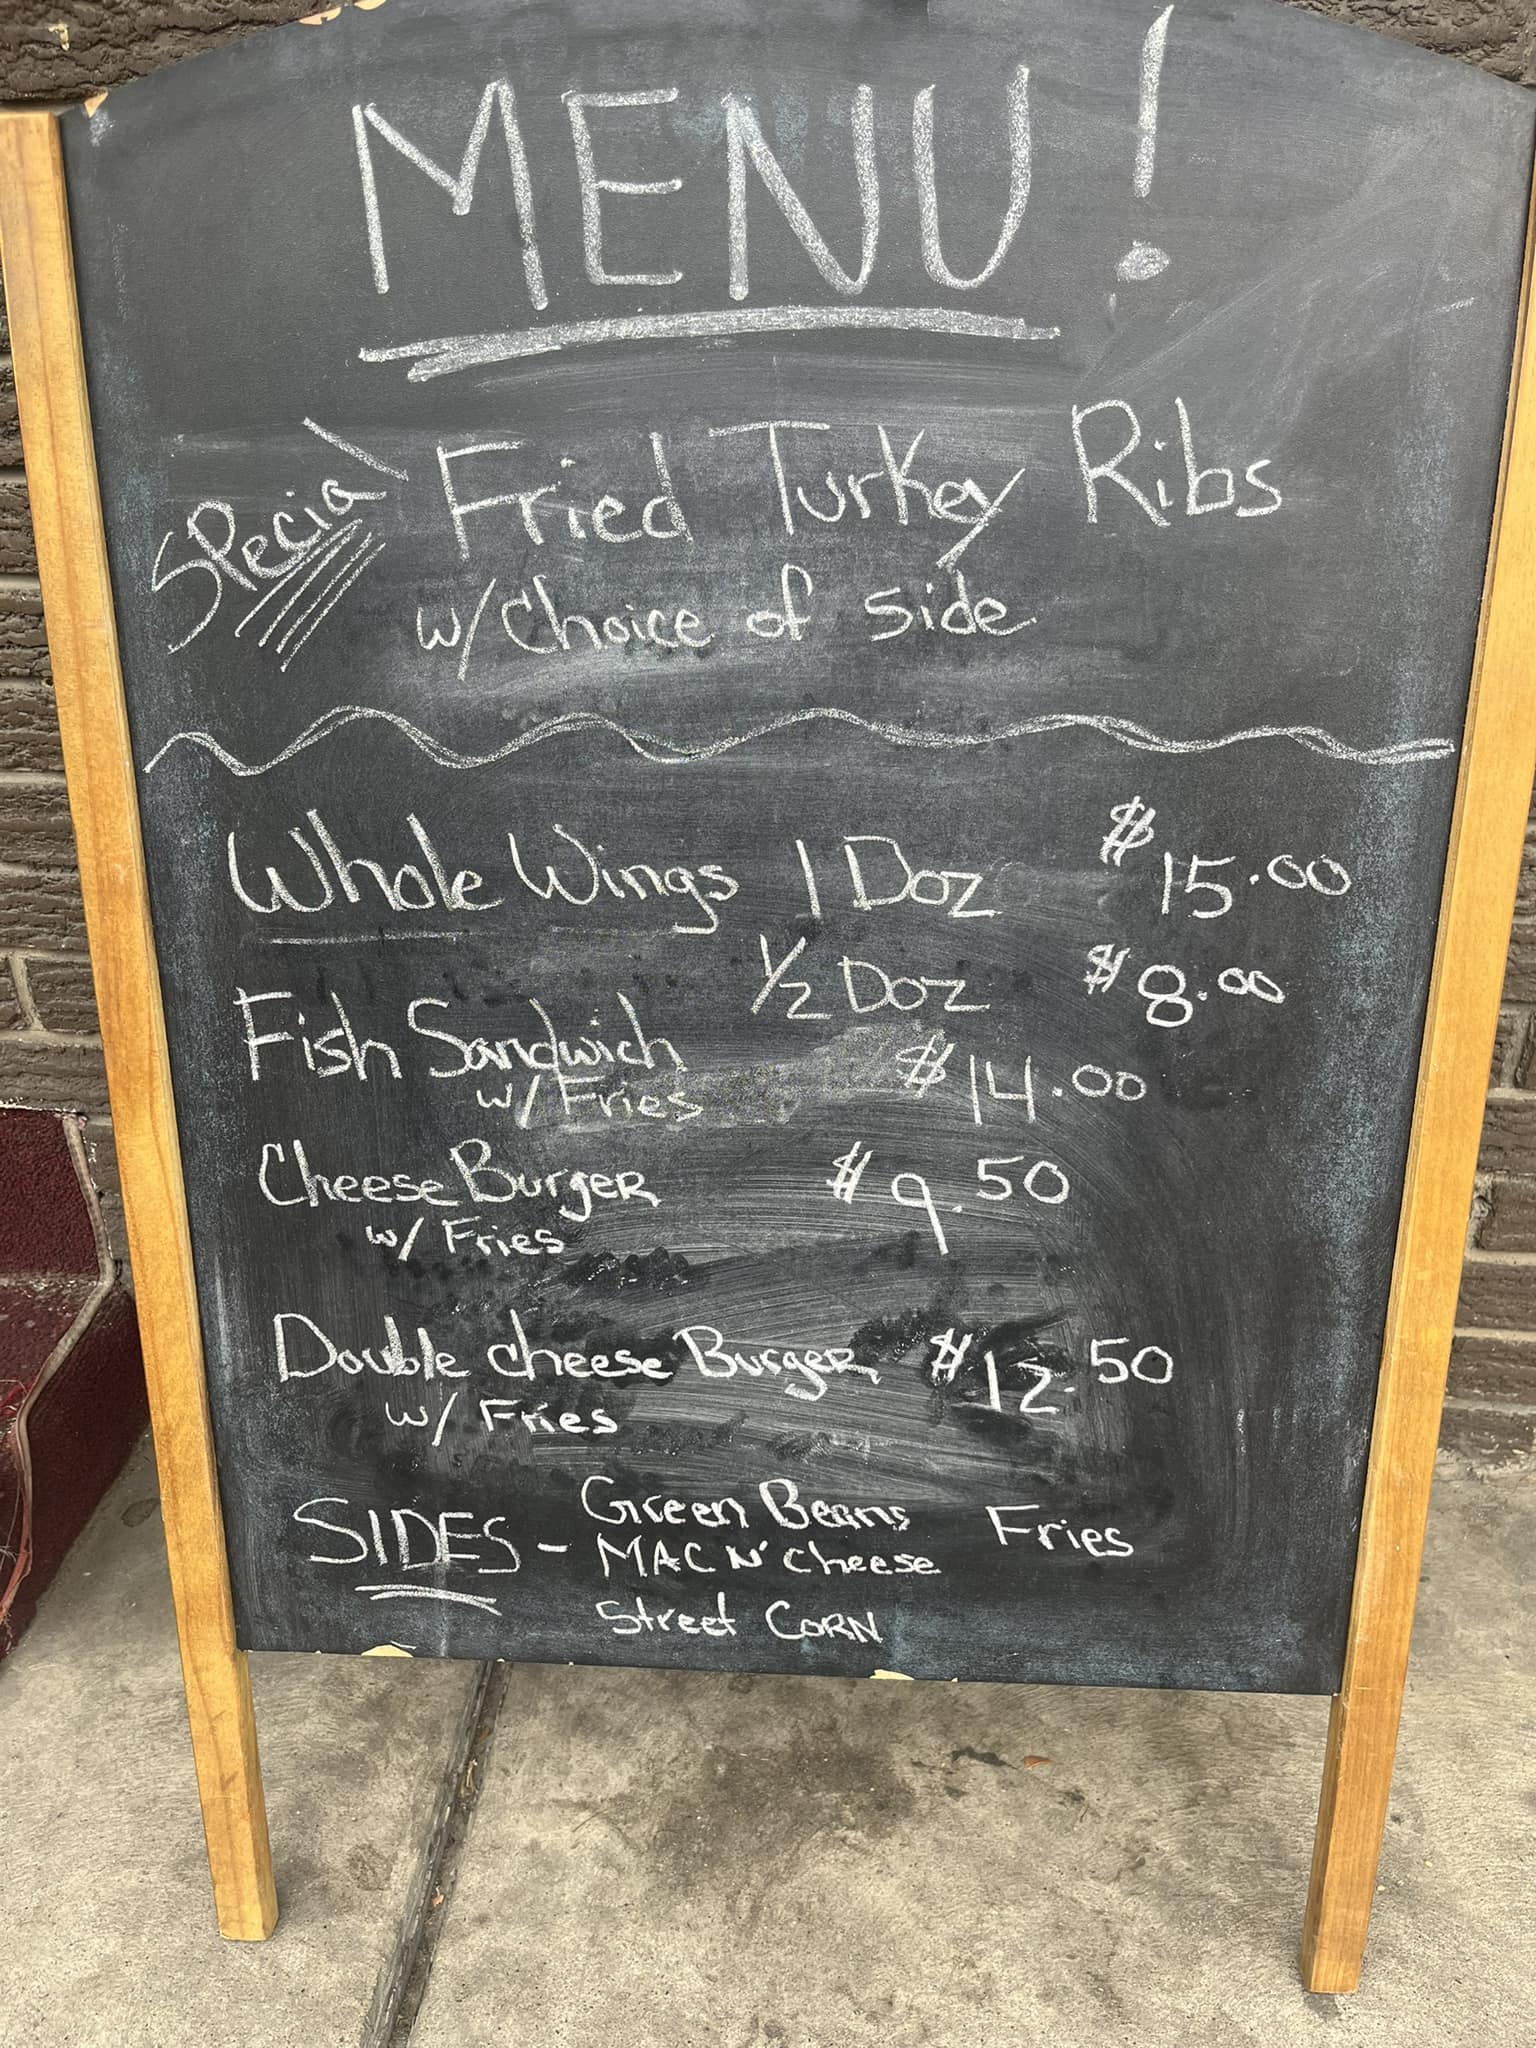 MENU!
Special Fried Turkey Ribs
w/Choice of side
Whole Wings 1 Doz $15.00
1/2 Doz $8.00
Fish Sandwich $14.00
w/Fries
Cheese Burger $9.50
w/ Fries
Double cheese Burger $12.50
w/ Fries
SIDES - Green Beans Fries
MAC N' cheese
Street CORN